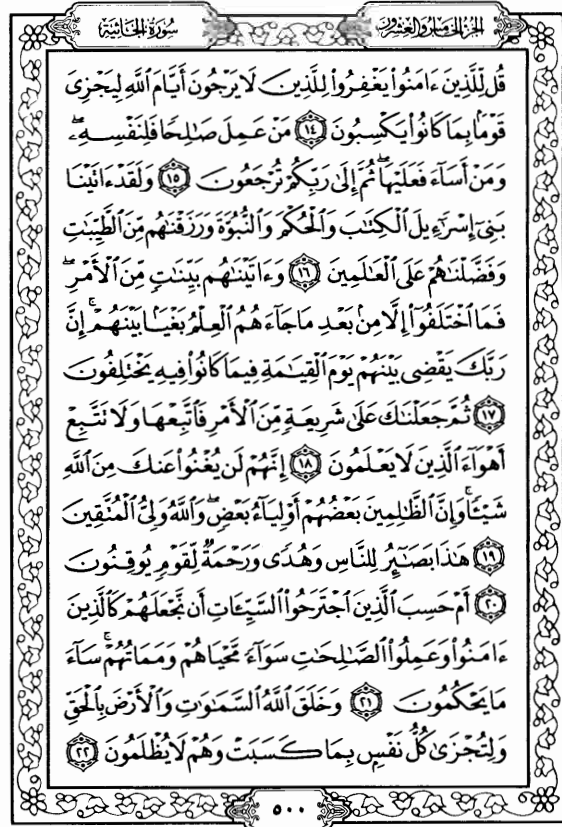 الجزء الخامس والعشرون
سورة الجاثية
قُل لِّلَّذِينَ ءَامَنُوا۟ يَغْفِرُوا۟ لِلَّذِينَ لَا يَرْجُونَ أَيَّامَ ٱللَّهِ لِيَجْزِىَ
قَوْمًۢا بِمَا كَانُوا۟ يَكْسِبُونَ ١٤ مَنْ عَمِلَ صَٰلِحًا فَلِنَفْسِهِۦ ۖ
وَمَنْ أَسَآءَ فَعَلَيْهَا ۖ ثُمَّ إِلَىٰ رَبِّكُمْ تُرْجَعُونَ ١٥ وَلَقَدْ ءَاتَيْنَا
بَنِىٓ إِسْرَٰٓءِيلَ ٱلْكِتَٰبَ وَٱلْحُكْمَ وَٱلنُّبُوَّةَ وَرَزَقْنَٰهُم مِّنَ ٱلطَّيِّبَٰتِ
وَفَضَّلْنَٰهُمْ عَلَى ٱلْعَٰلَمِينَ ١٦ وَءَاتَيْنَٰهُم بَيِّنَٰتٍ مِّنَ ٱلْأَمْرِ ۖ
فَمَا ٱخْتَلَفُوٓا۟ إِلَّا مِنۢ بَعْدِ مَا جَآءَهُمُ ٱلْعِلْمُ بَغْيًۢا بَيْنَهُمْ ۚ إِنَّ
رَبَّكَ يَقْضِى بَيْنَهُمْ يَوْمَ ٱلْقِيَٰمَةِ فِيمَا كَانُوا۟ فِيهِ يَخْتَلِفُونَ
١٧ ثُمَّ جَعَلْنَٰكَ عَلَىٰ شَرِيعَةٍ مِّنَ ٱلْأَمْرِ فَٱتَّبِعْهَا وَلَا تَتَّبِعْ
أَهْوَآءَ ٱلَّذِينَ لَا يَعْلَمُونَ ١٨ إِنَّهُمْ لَن يُغْنُوا۟ عَنكَ مِنَ ٱللَّهِ
شَيْـًٔا ۚ وَإِنَّ ٱلظَّٰلِمِينَ بَعْضُهُمْ أَوْلِيَآءُ بَعْضٍ ۖ وَٱللَّهُ وَلِىُّ ٱلْمُتَّقِينَ
١٩ هَٰذَا بَصَٰٓئِرُ لِلنَّاسِ وَهُدًى وَرَحْمَةٌ لِّقَوْمٍ يُوقِنُونَ
٢٠ أَمْ حَسِبَ ٱلَّذِينَ ٱجْتَرَحُوا۟ ٱلسَّيِّـَٔاتِ أَن نَّجْعَلَهُمْ كَٱلَّذِينَ
ءَامَنُوا۟ وَعَمِلُوا۟ ٱلصَّٰلِحَٰتِ سَوَآءً مَّحْيَاهُمْ وَمَمَاتُهُمْ ۚ سَآءَ
مَا يَحْكُمُونَ ٢١ وَخَلَقَ ٱللَّهُ ٱلسَّمَٰوَٰتِ وَٱلْأَرْضَ بِٱلْحَقِّ
وَلِتُجْزَىٰ كُلُّ نَفْسٍۭ بِمَا كَسَبَتْ وَهُمْ لَا يُظْلَمُونَ ٢٢
٥٠٠